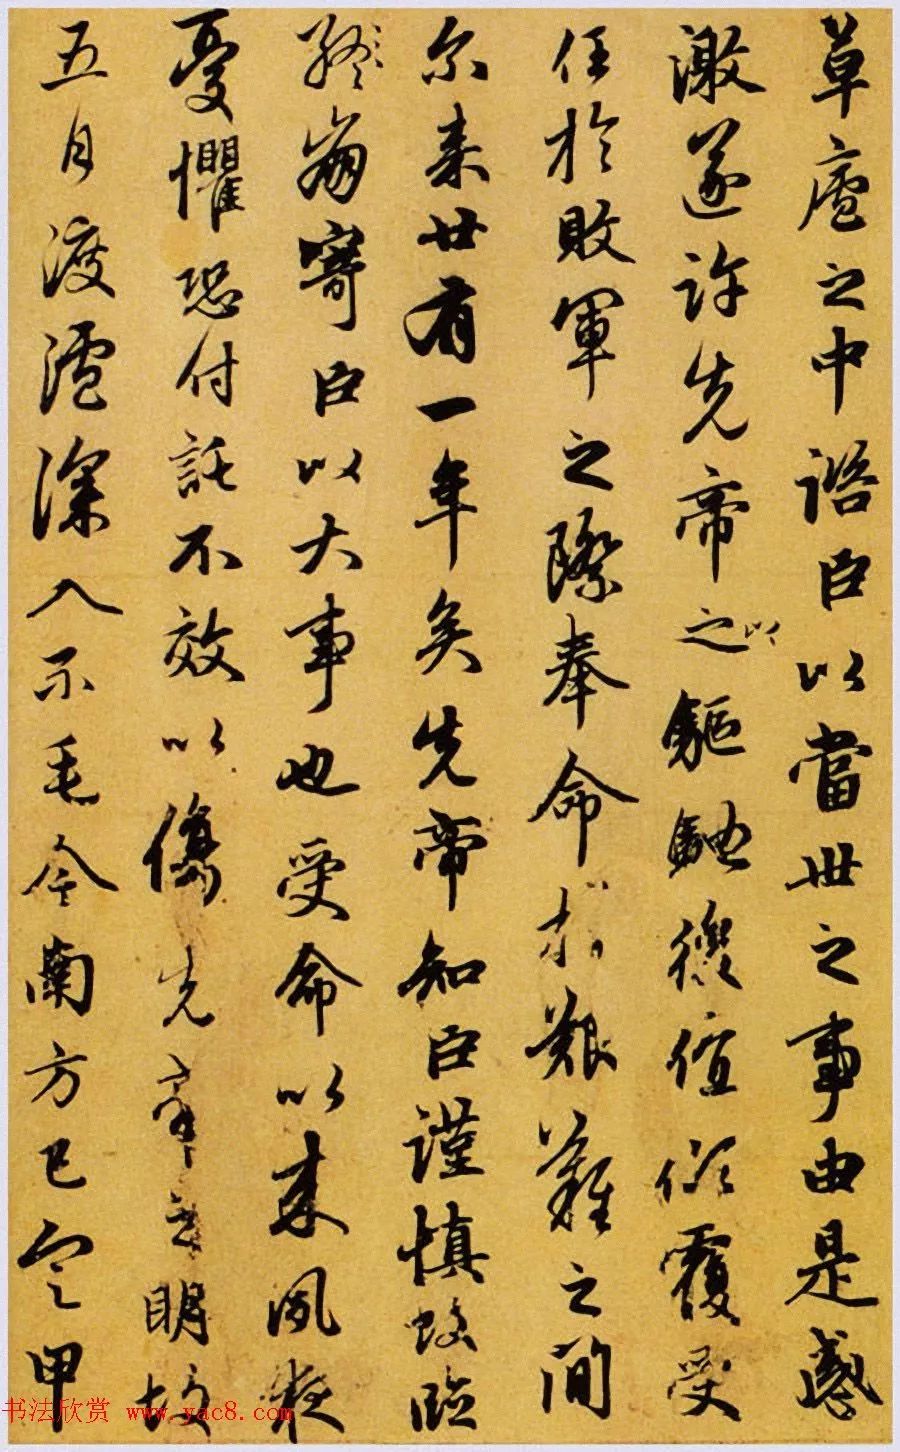 草廬之中諮臣以當世之事由是感
激遂許先帝之以驅馳後值傾覆受
任於敗軍之際奉命於艱難之間
尔来廿有一年矣先帝知臣謹慎故臨
終崩寄臣以大事也受命以来夙夜
憂懼恐付託不效以傷先帝之明故
五月渡瀘深入不毛今南方已定甲
书法欣赏 www.yac8.com